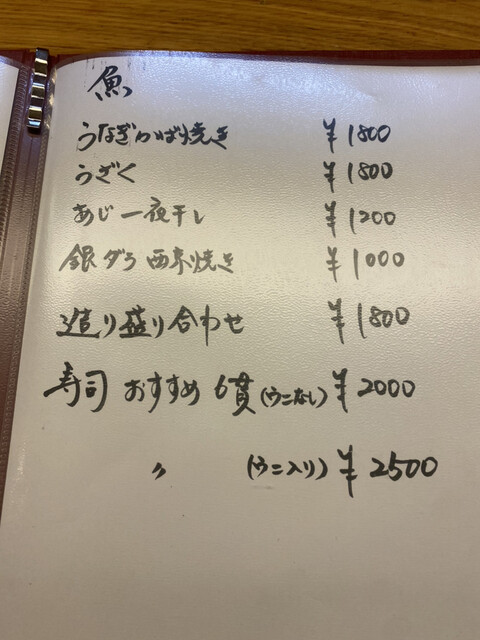 魚
うなぎかば焼き ¥1800
うざく ¥1800
あじ一夜干し ¥1200
銀ダラ西京焼き ¥1000
造り盛り合わせ ¥1800
寿司 おすすめ 6貫(ウニなし) ¥2000
〃 (ウニ入り) ¥2500